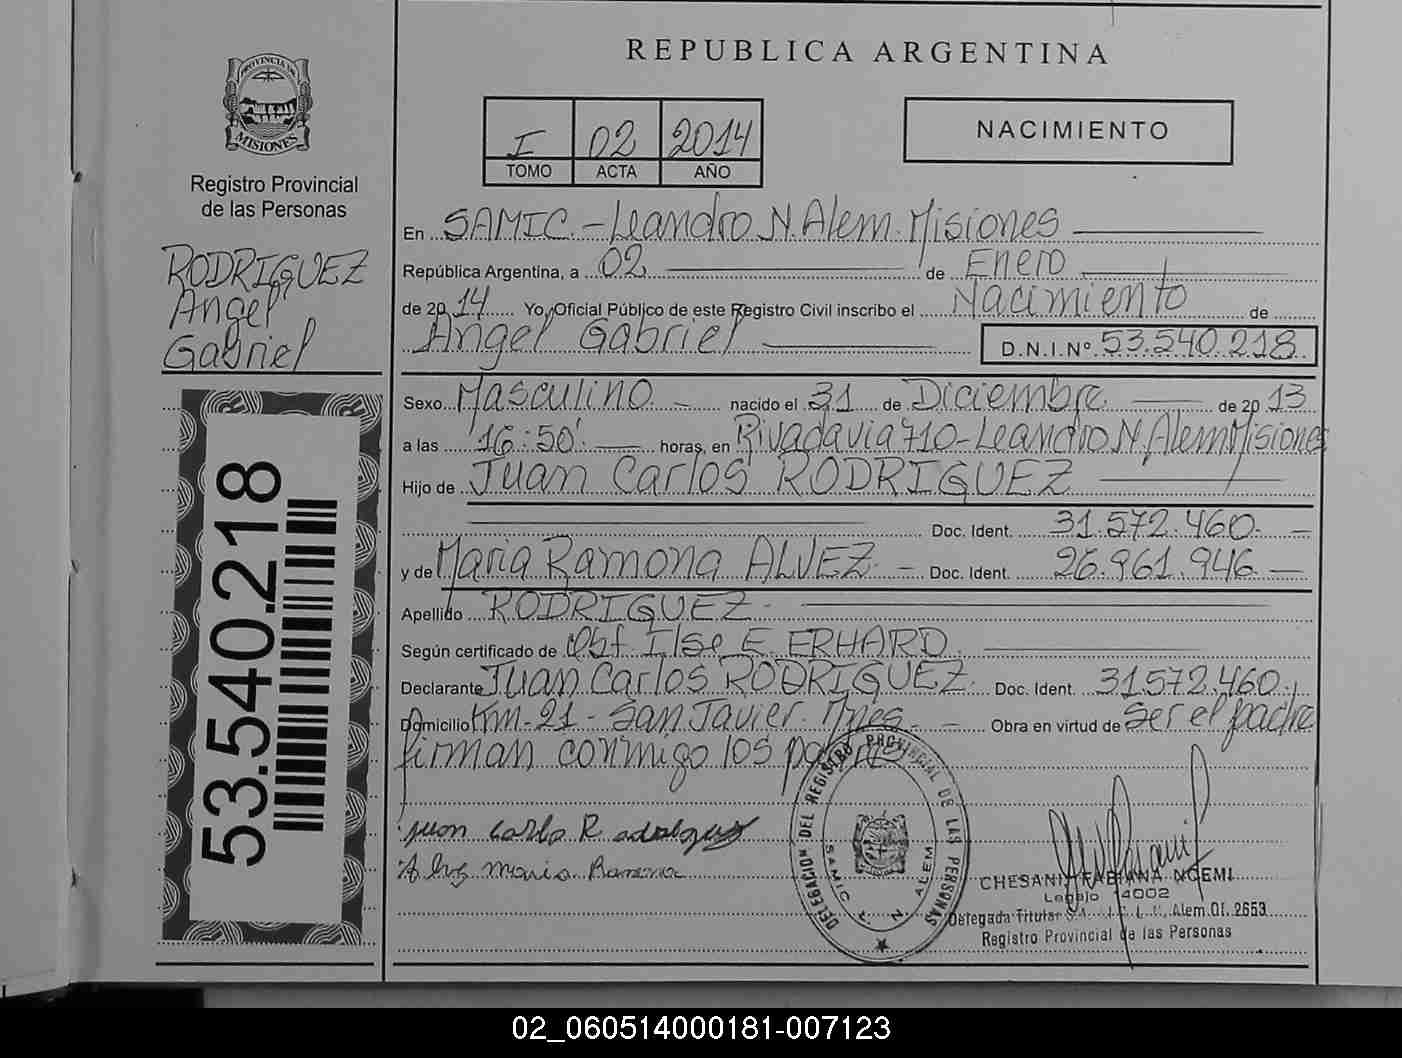 REPUBLICA ARGENTINA
PROVINCIA DE
MISIONES
Registro Provincial
de las Personas
RODRIGUEZ
Angel
Gabriel
53.540.218
I 02 2014
TOMO ACTA AÑO
NACIMIENTO
En SAMIC - Leandro N. Alem. Misiones
República Argentina, a 02 de Enero
de 2014 Yo, Oficial Público de este Registro Civil inscribo el Nacimiento de
Angel Gabriel D.N.I.Nº 53.540.218
Sexo Masculino nacido el 31 de Diciembre de 2013
a las 16:50 horas, en Rivadavia 710 - Leandro N. Alem Misiones
Hijo de Juan Carlos RODRIGUEZ
Doc. Ident. 31.572.460
y de Maria Ramona ALVEZ - Doc. Ident. 26.961.946
Apellido RODRIGUEZ
Según certificado de Obst. Ilse E. ERHARD
Declarante Juan Carlos RODRIGUEZ Doc. Ident. 31.572.460
Domicilio Km-21 - San Javier. Mnes. Obra en virtud de Ser el padre
firman conmigo los padres
juan carlo Rodriguez
Alvez Maria Ramona
DELEGACION DEL REGISTRO PROVINCIAL DE LAS PERSONAS
SAMIC L. N. ALEM
CHESANI FABIANA NOEMI
Legajo 14002
Delegada Titular L. N. Alem Of. 2653
Registro Provincial de las Personas
02_060514000181-007123